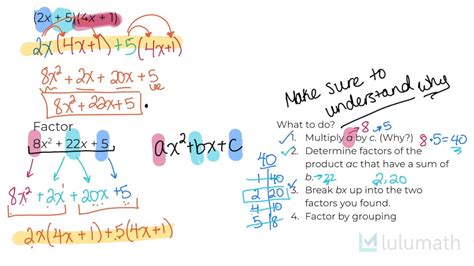 (2x + 5)(4x + 1)
2x(4x+1) +5(4x+1)
8x² + 2x + 20x + 5
8x² + 22x + 5 .
Factor
8x² + 22x + 5
8x² + 2x + 20x +5
2x(4x+1) + 5(4x+1)
ax²+bx+c
40
1 40
2 20
4 10
5 8
Make sure to
understand why
What to do? 8 5
1. Multiply a by c. (Why?) 8·5=40
2. Determine factors of the
product ac that have a sum of
b. → 22 2·20
3. Break bx up into the two
factors you found.
4. Factor by grouping
lulumath